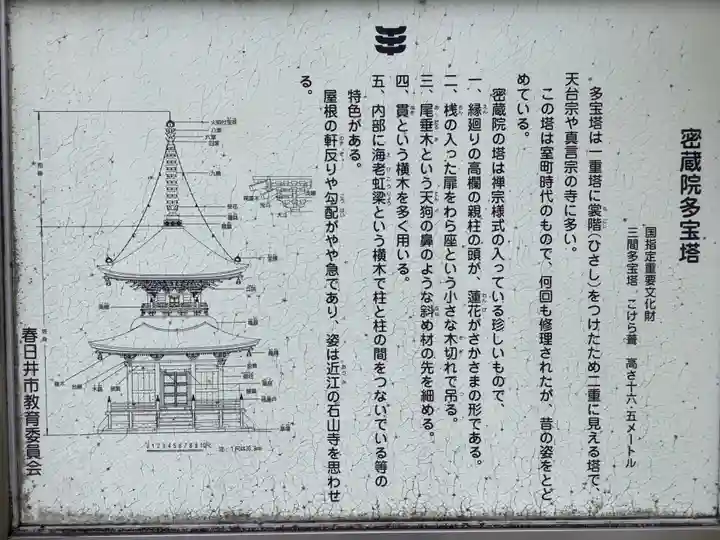 密蔵院多宝塔
国指定重要文化財
三間多宝塔　こけら葺　高さ十六・五メートル
多宝塔は一重塔に裳階（ひさし）をつけたため二重に見える塔で、
天台宗や真言宗の寺に多い。
この塔は室町時代のもので、何回も修理されたが、昔の姿をとど
めている。
密蔵院の塔は禅宗様式の入っている珍しいもので、
一、縁廻りの高欄の親柱の頭が、蓮花がさかさまの形である。
二、桟の入った扉をわら座という小さな木切れで吊る。
三、尾垂木という天狗の鼻のような斜め材の先を細める。
四、貫という横木を多く用いる。
五、内部に海老虹梁という横木で柱と柱の間をつないでいる等の
特色がある。
屋根の軒反りや勾配がやや急であり、姿は近江の石山寺を思わせ
る。
春日井市教育委員会